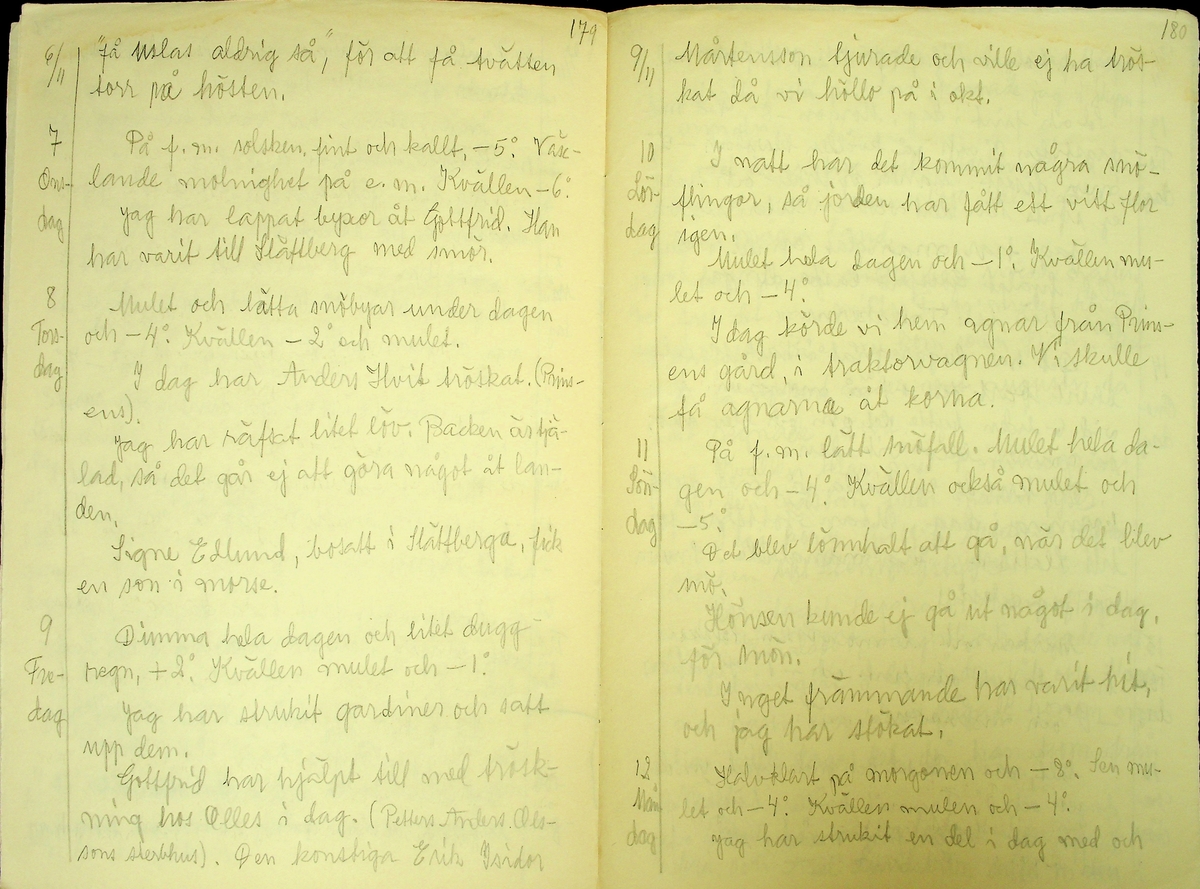 179
6/11 "få uslas aldrig så", för att få tvätten
torr på hösten.
7 På f.m. solsken, fint och kallt, -5°. Väx-
Ons- lande molnighet på e.m. Kvällen -6°.
dag Jag har lappat byxor åt Gottfrid. Han
har varit till Slättberg med smör.
8 Mulet och lätta snöbyar under dagen
Tors- och -4°. Kvällen -2° och mulet.
dag I dag har Anders Hvit tröskat. (Prins-
ens).
Jag har räfsat litet löv. Backen är tjä-
lad, så det går ej att göra något åt lan-
den.
Signe Edlund, bosatt i Slättberga, fick
en son i morse.
9 Dimma hela dagen och litet dugg-
Fre- regn, +2°. Kvällen mulet och -1°.
dag Jag har strukit gardiner och satt
upp dem.
Gottfrid har hjälpt till med trösk-
ning hos Olles i dag. (Petters Anders Ols-
sons sterbhus). Den konstiga Erik Isidor
180
9/11 Mårtensson tjurade och ville ej ha trös-
kat då vi höllo på i okt.
10 I natt har det kommit några snö-
Lör- flingor, så jorden har fått ett vitt flor
dag igen.
Mulet hela dagen och -1°. Kvällen mu-
let och -4°.
I dag körde vi hem agnar från Prins-
ens gård, i traktorvagnen. Vi skulle
få agnarna åt korna.
11 På f.m. lätt snöfall. Mulet hela da-
Sön- gen och -4°. Kvällen också mulet och
dag -5°.
Det blev lömnhalt att gå, när det blev
snö.
Hönsen kunde ej gå ut något i dag,
för snön.
Inget främmande har varit hit,
och jag har stökat.
12 Halvklart på morgonen och -8°. Sen mu-
Mån let och -4°. Kvällen mulen och -4°.
dag Jag har strukit en del i dag med och